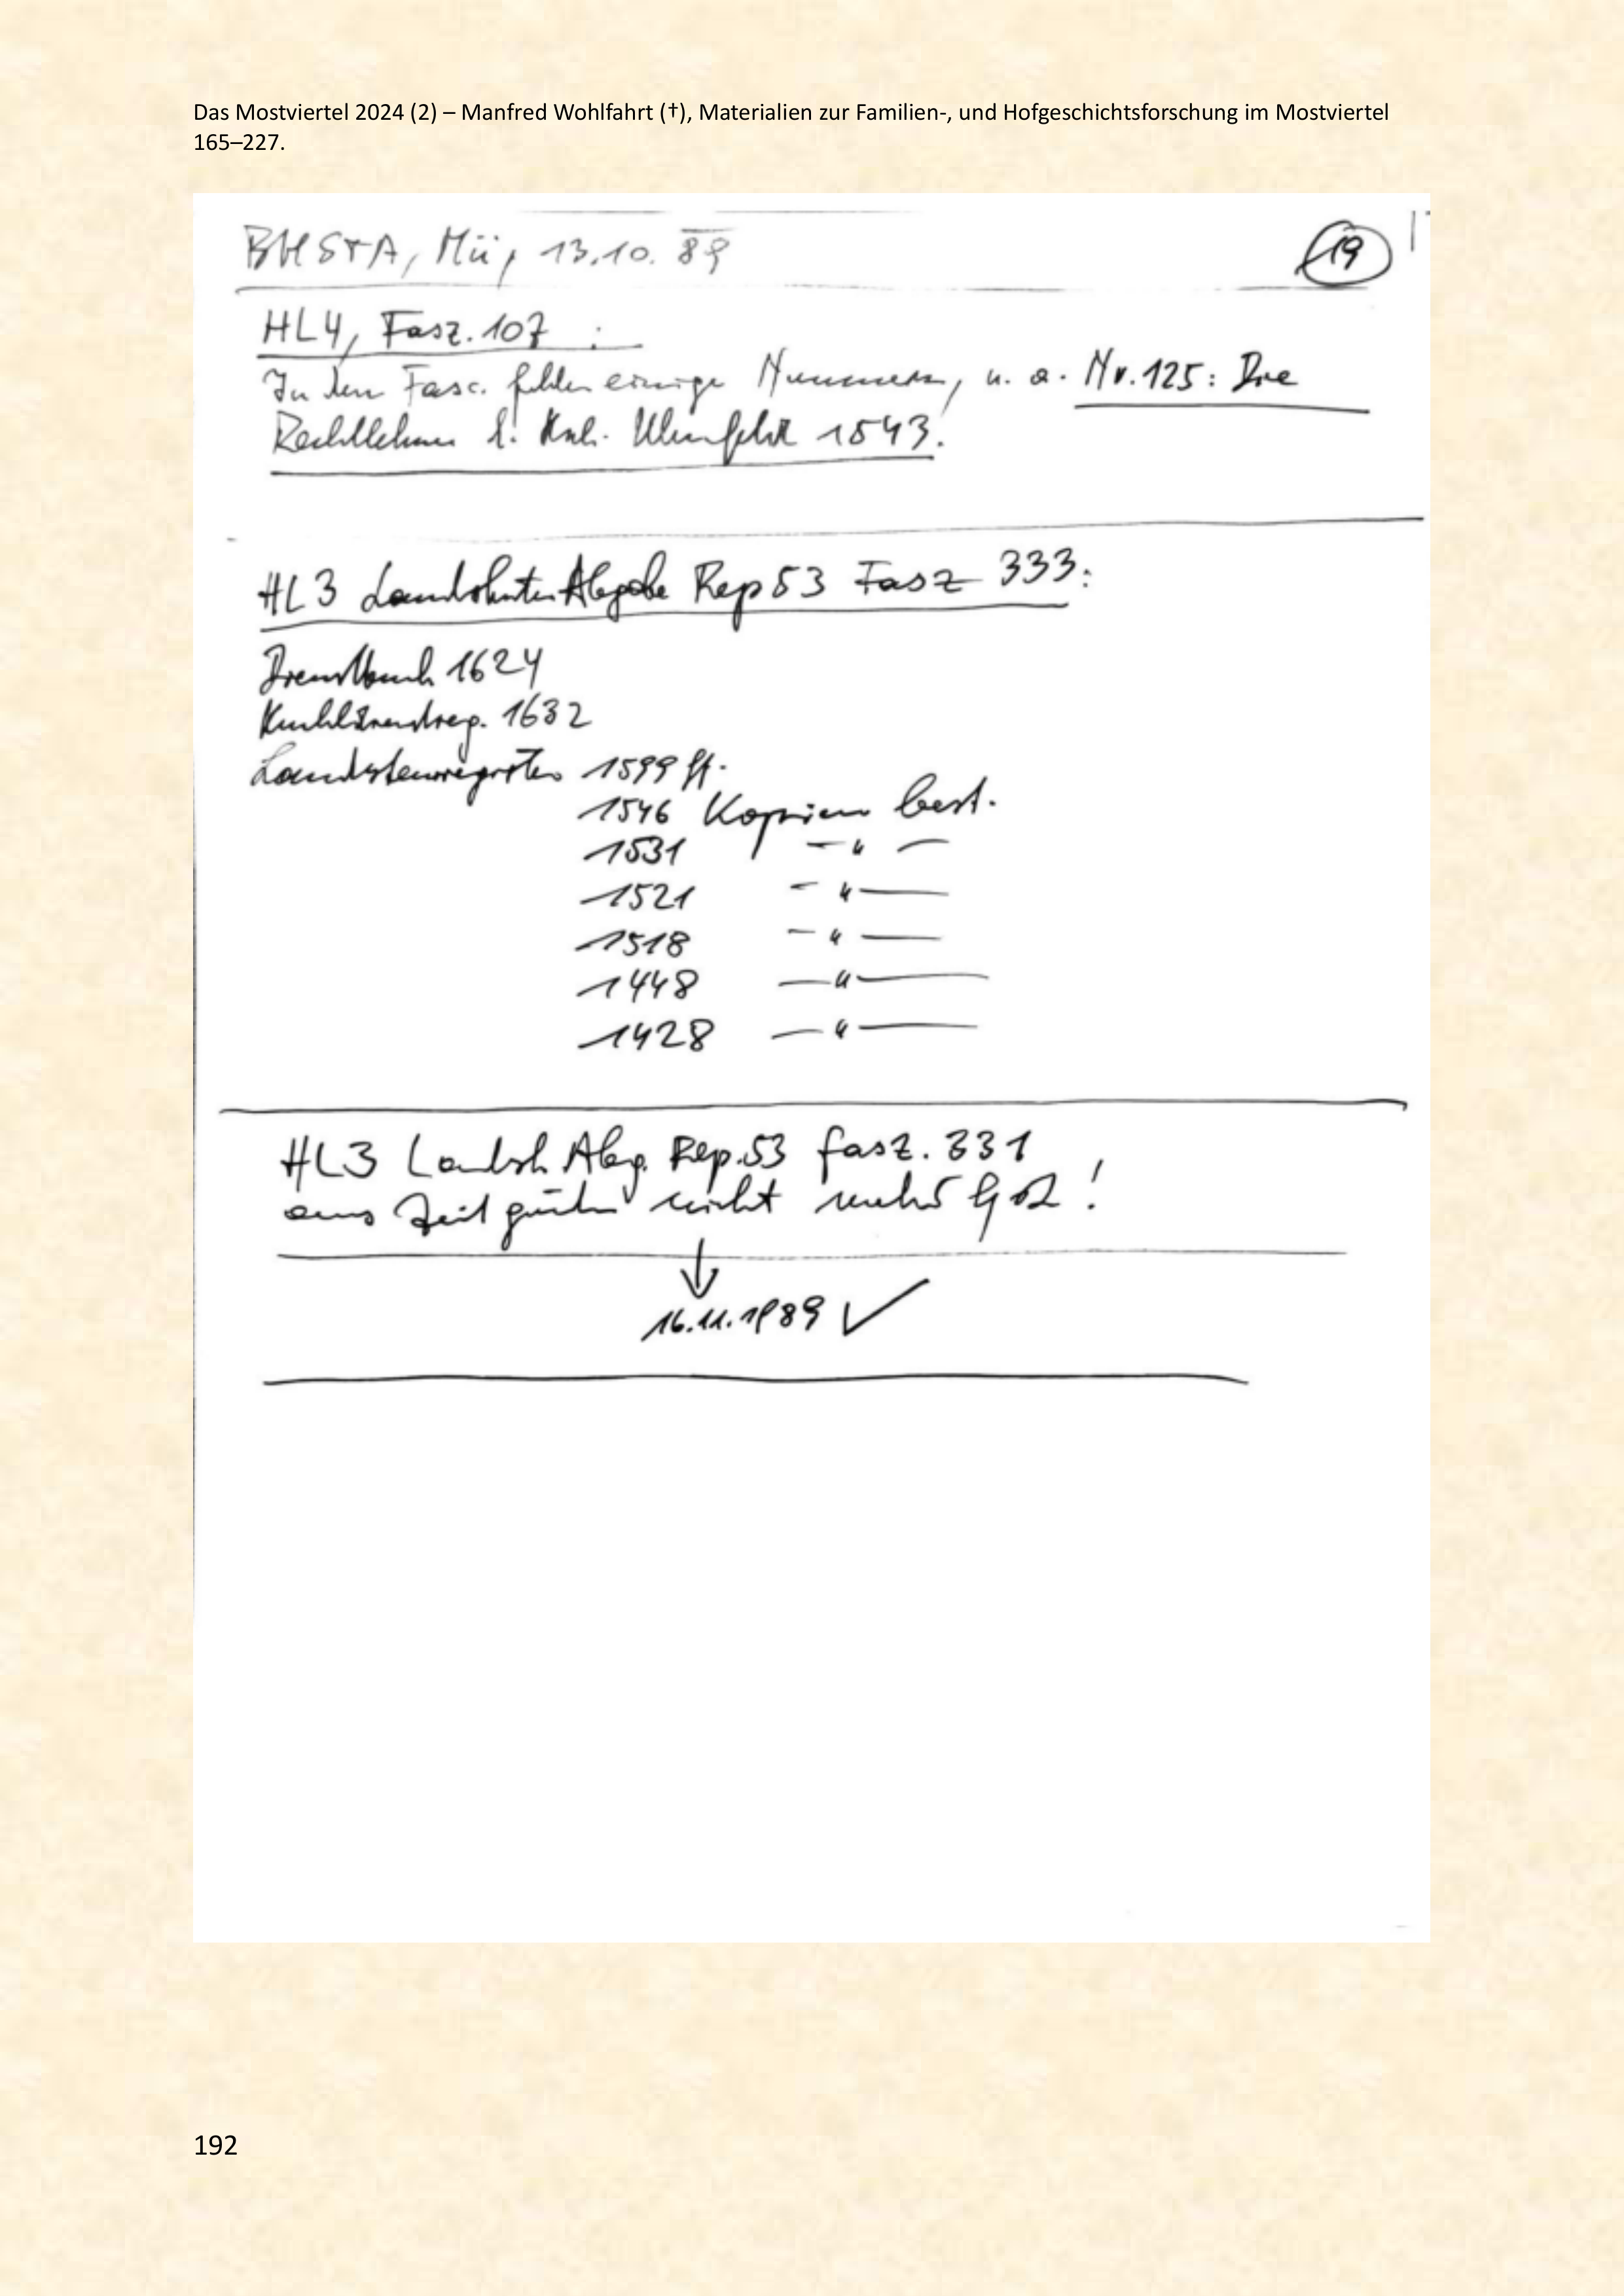 Das Mostviertel 2024 (2) – Manfred Wohlfahrt (†), Materialien zur Familien-, und Hofgeschichtsforschung im Mostviertel
165–227.
BHSTA, Mü, 13.10.89
19
HL4, Fasz. 107 :
In den Fasc. fehlen einige Nummern, u. a. Nr. 125: Die
Rechtlehen 1543.
HL3 Abgabe Rep 53 Fasz 333:
Dienstbuch 1624
1632
Landsteuerregister 1599 ff.
1546 Kopien best.
1531 — " —
1521 — " —
1518 — " —
1448 — " —
1428 — " —
HL3 Landsh Abg. Rep. 53 fasz. 331
aus Zeitgründen nicht mehr
16.11.1989 ✓
192